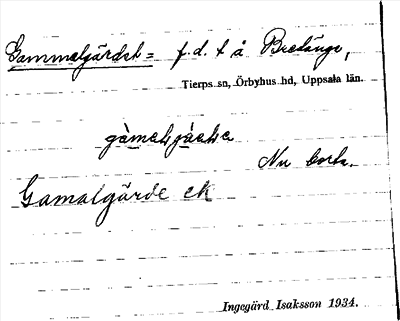 Gammelgärdet = f.d. t å Bredänge,
Tierps sn, Örbyhus hd, Uppsala län.
Nu borta.
Gamalgärde ek
Ingegärd Isaksson 1934.